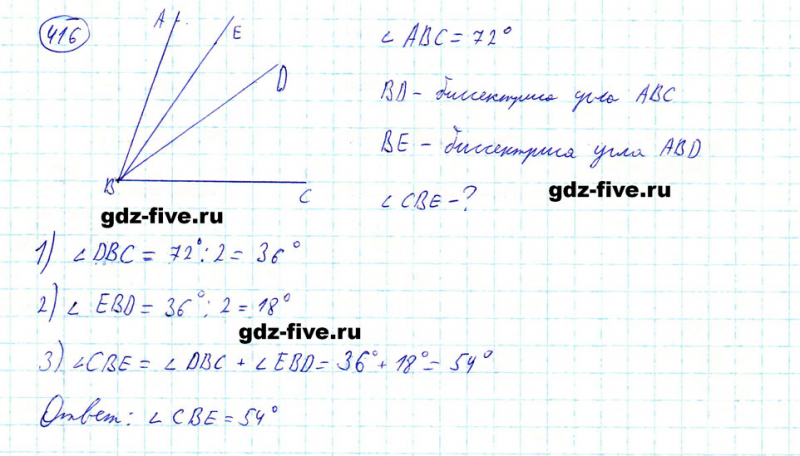 416
A
E
D
B
C
∠ABC = 72°
BD - биссектриса угла ABC
BE - биссектриса угла ABD
∠CBE - ?
gdz-five.ru
gdz-five.ru
1) ∠DBC = 72° : 2 = 36°
2) ∠ EBD = 36° : 2 = 18°
gdz-five.ru
3) ∠CBE = ∠ DBC + ∠ EBD = 36° + 18° = 54°
Ответ: ∠ CBE = 54°